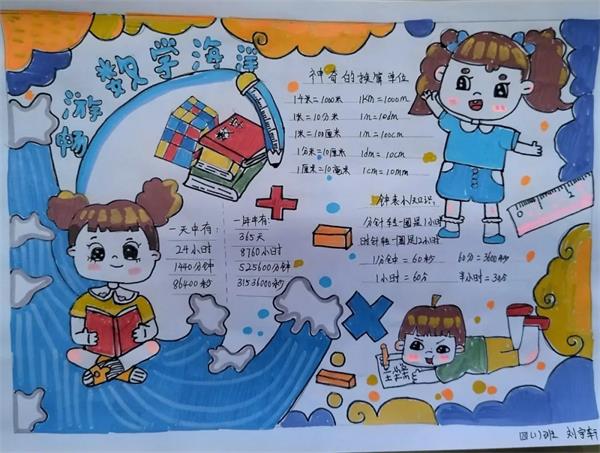 畅游数学海洋
神奇的换算单位
1千米=1000米 1km=1000m
1米=10分米 1m=10dm
1米=100厘米 1m=100cm
1分米=10厘米 1dm=10cm
1厘米=10毫米 1cm=10mm
钟表小知识:
分针转一圈是1小时
时针转一圈是12小时
1分钟=60秒 60分=3600秒
1小时=60分 半小时=30分
一天中有:
24小时
1440分钟
86400秒
一年中有:
365天
8760小时
525600分钟
31536000秒
四(1)班 刘宇轩